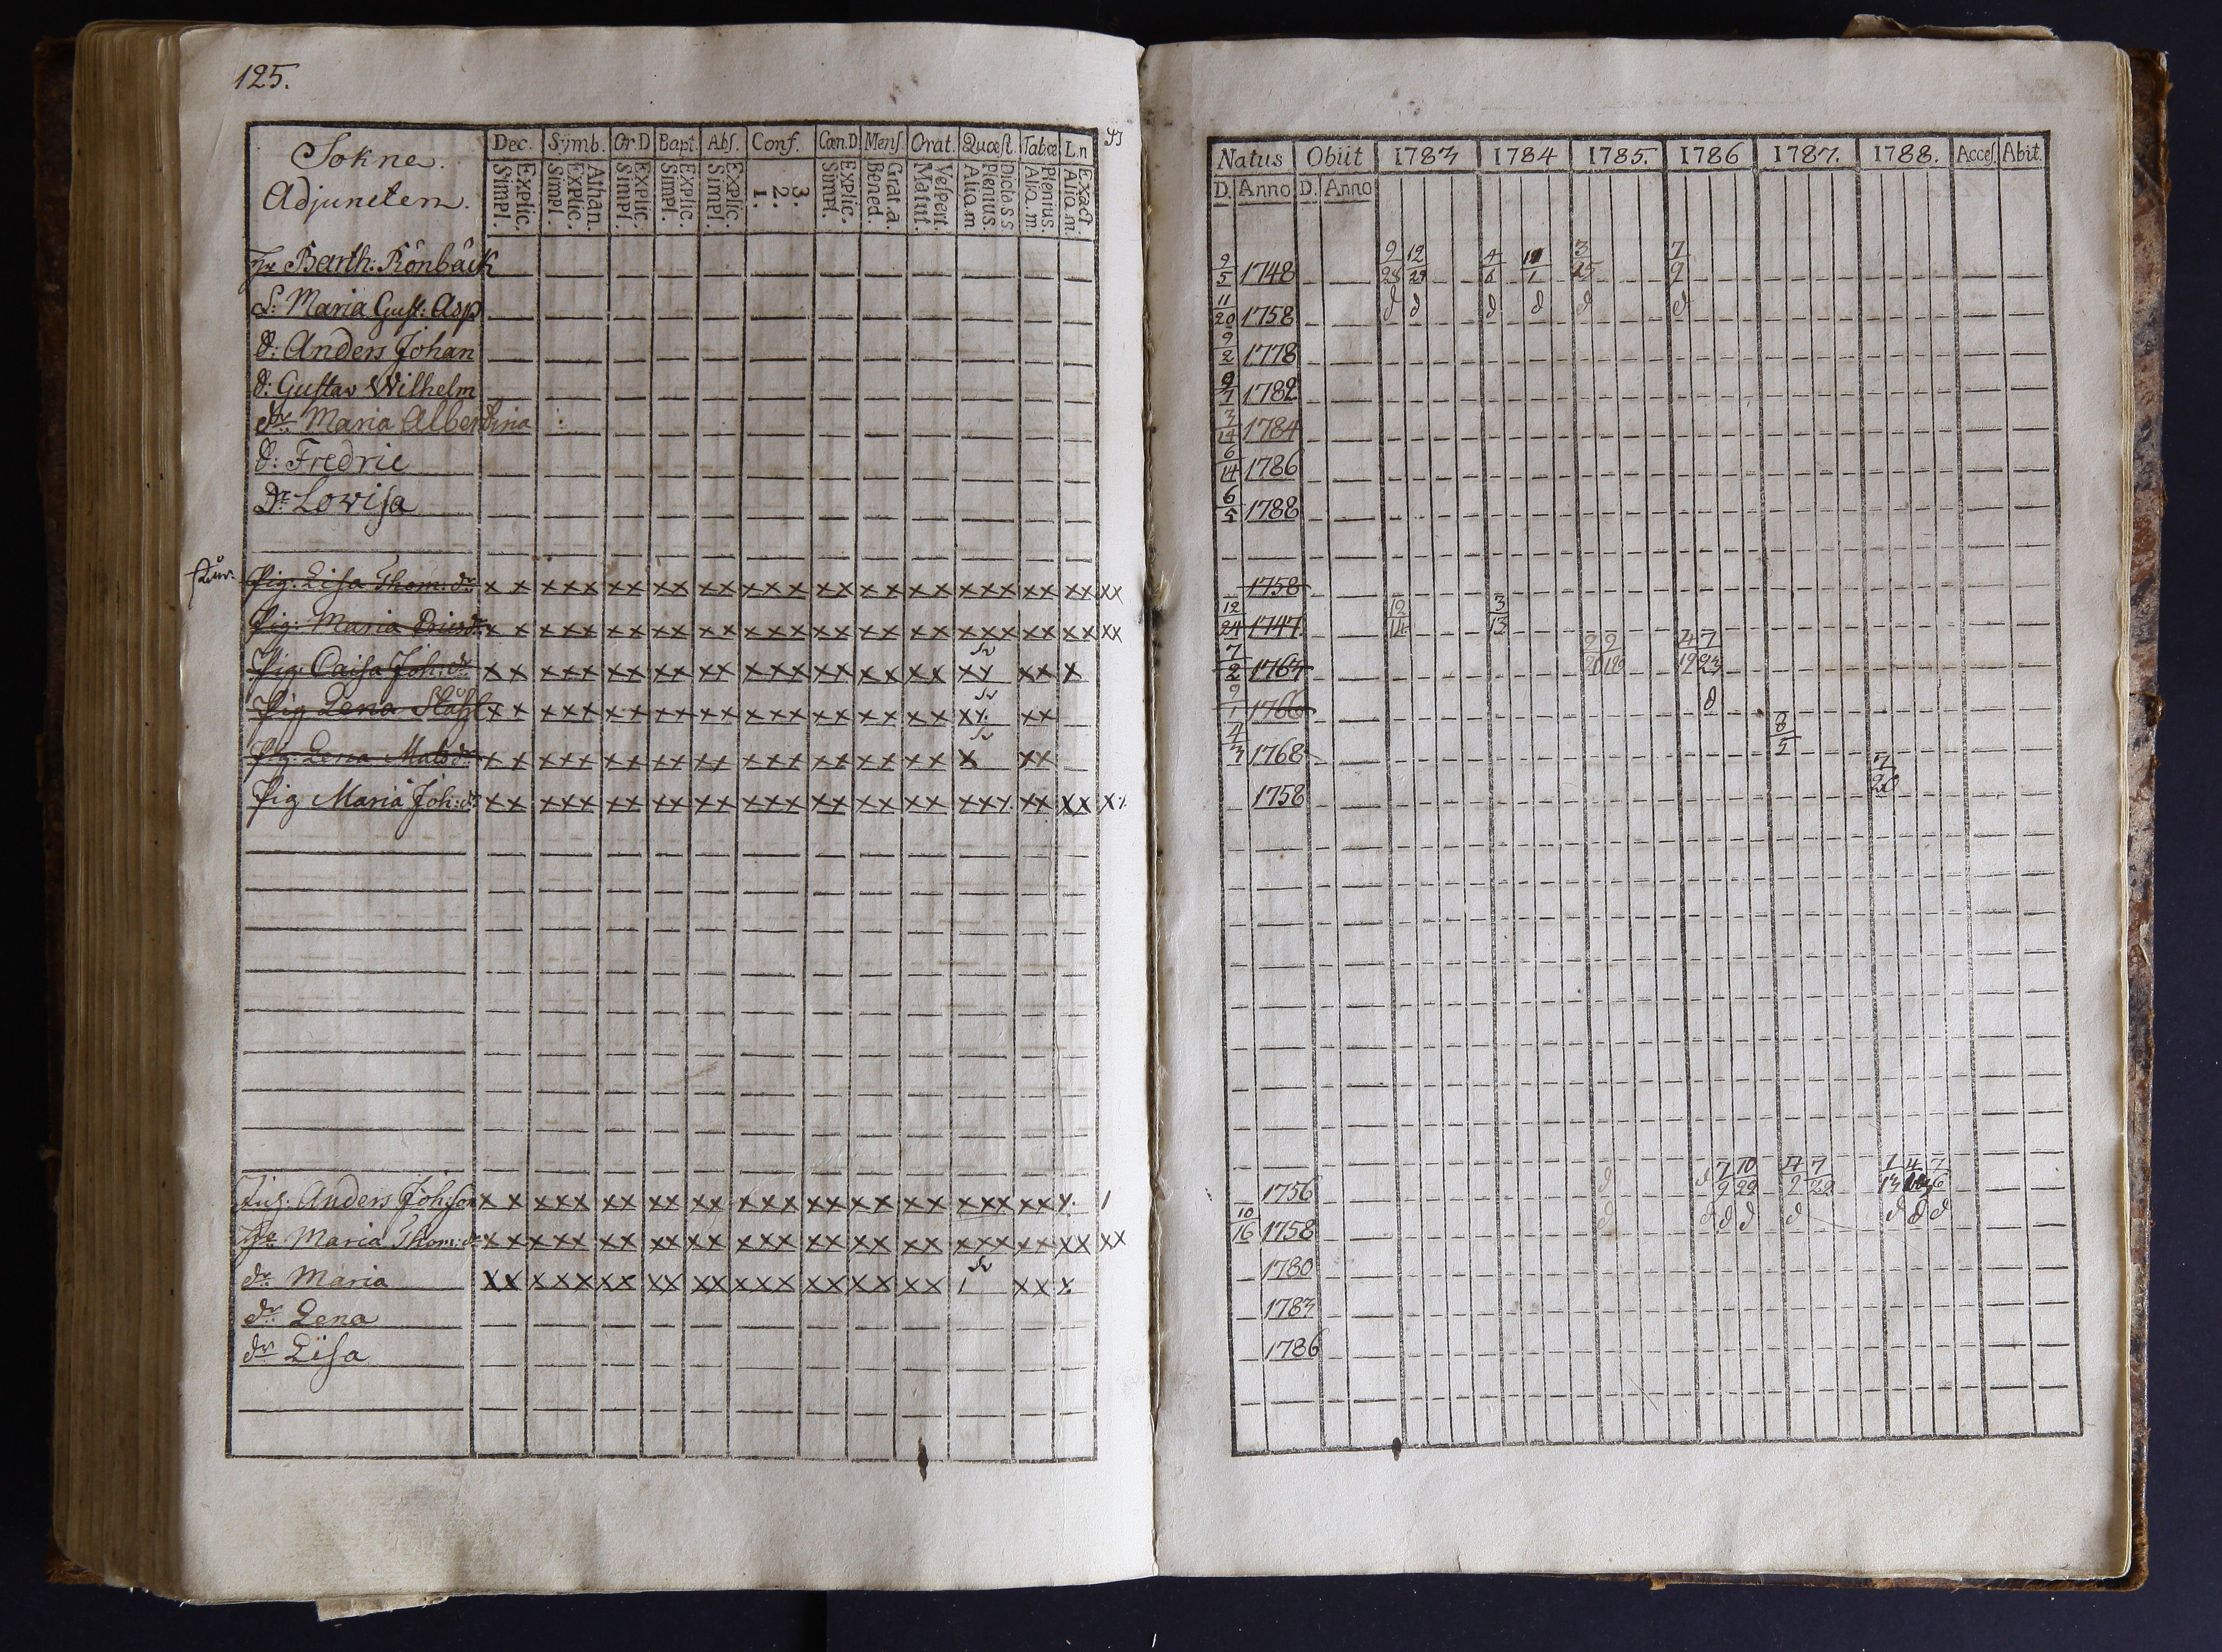 125.
Sokne.
Adjuncten.
Dec. Symb. Or.D Bapt. Abſ. Conf. Cœn.D Menſ. Orat. Quœſt. Tabœ L.n
Simpl. Explic. Simpl. Explic. Athan. Simpl. Explic. Simpl. Explic. Simpl. Explic. 1. 2. 3. Simpl. Explic. Bened. Grat.a. Matut. Veſpert. Aliq.m Plenius. Dict.a S S Aliq.m Plenius. Aliq.m. Exact.
Barth: Rönbäck
Maria Guſt: Asp
d: Anders Johan
d: Guſtav Wilhelm
dr Maria Albertina
d: Fredric
Dr Loviſa
Pig: Liſa Thom: dr x x x x x x x x x x x x x x x x x x x x x x x x x x x x x
Pig: Maria x x x x x x x x x x x x x x x x x x x x x x x x x x x x x
Pig: Caisa Joh: dr x x x x x x x x x x x x x x x x x x x x x x x x x
Pig Lena x x x x x x x x x x x x x x x x x x x x x x x x
Pig: Lena Matsdr x x x x x x x x x x x x x x x x x x x x x x x
Pig Maria Joh: dr x x x x x x x x x x x x x x x x x x x x x x x x x x x x x
Anders Joh:ſon x x x x x x x x x x x x x x x x x x x x x x x x x x
Maria Thom: dr x x x x x x x x x x x x x x x x x x x x x x x x x x x x x
dr Maria x x x x x x x x x x x x x x x x x x x x x x x x
dr Lena
dr Liſa
Natus Obiit 1783 1784 1785. 1786 1787. 1788. Acceſ. Abit.
D. Anno D. Anno
9/5 1748 9/28 12/29 4/6 3/25 7/9
11/20 1758 d d d d d d
9/2 1778
9/7 1782
3/14 1784
6/14 1786
6/5 1788
1758
12/24 1747 12/14 3/13
7/2 1767 4/19 7/23
9/1 1766 d
4/3 1768 8/5
1758 7/20
1756 d 7/9 10/22 4/2 7/22 1/13
10/16 1758 d d d d d d d d
1780
1783
1786